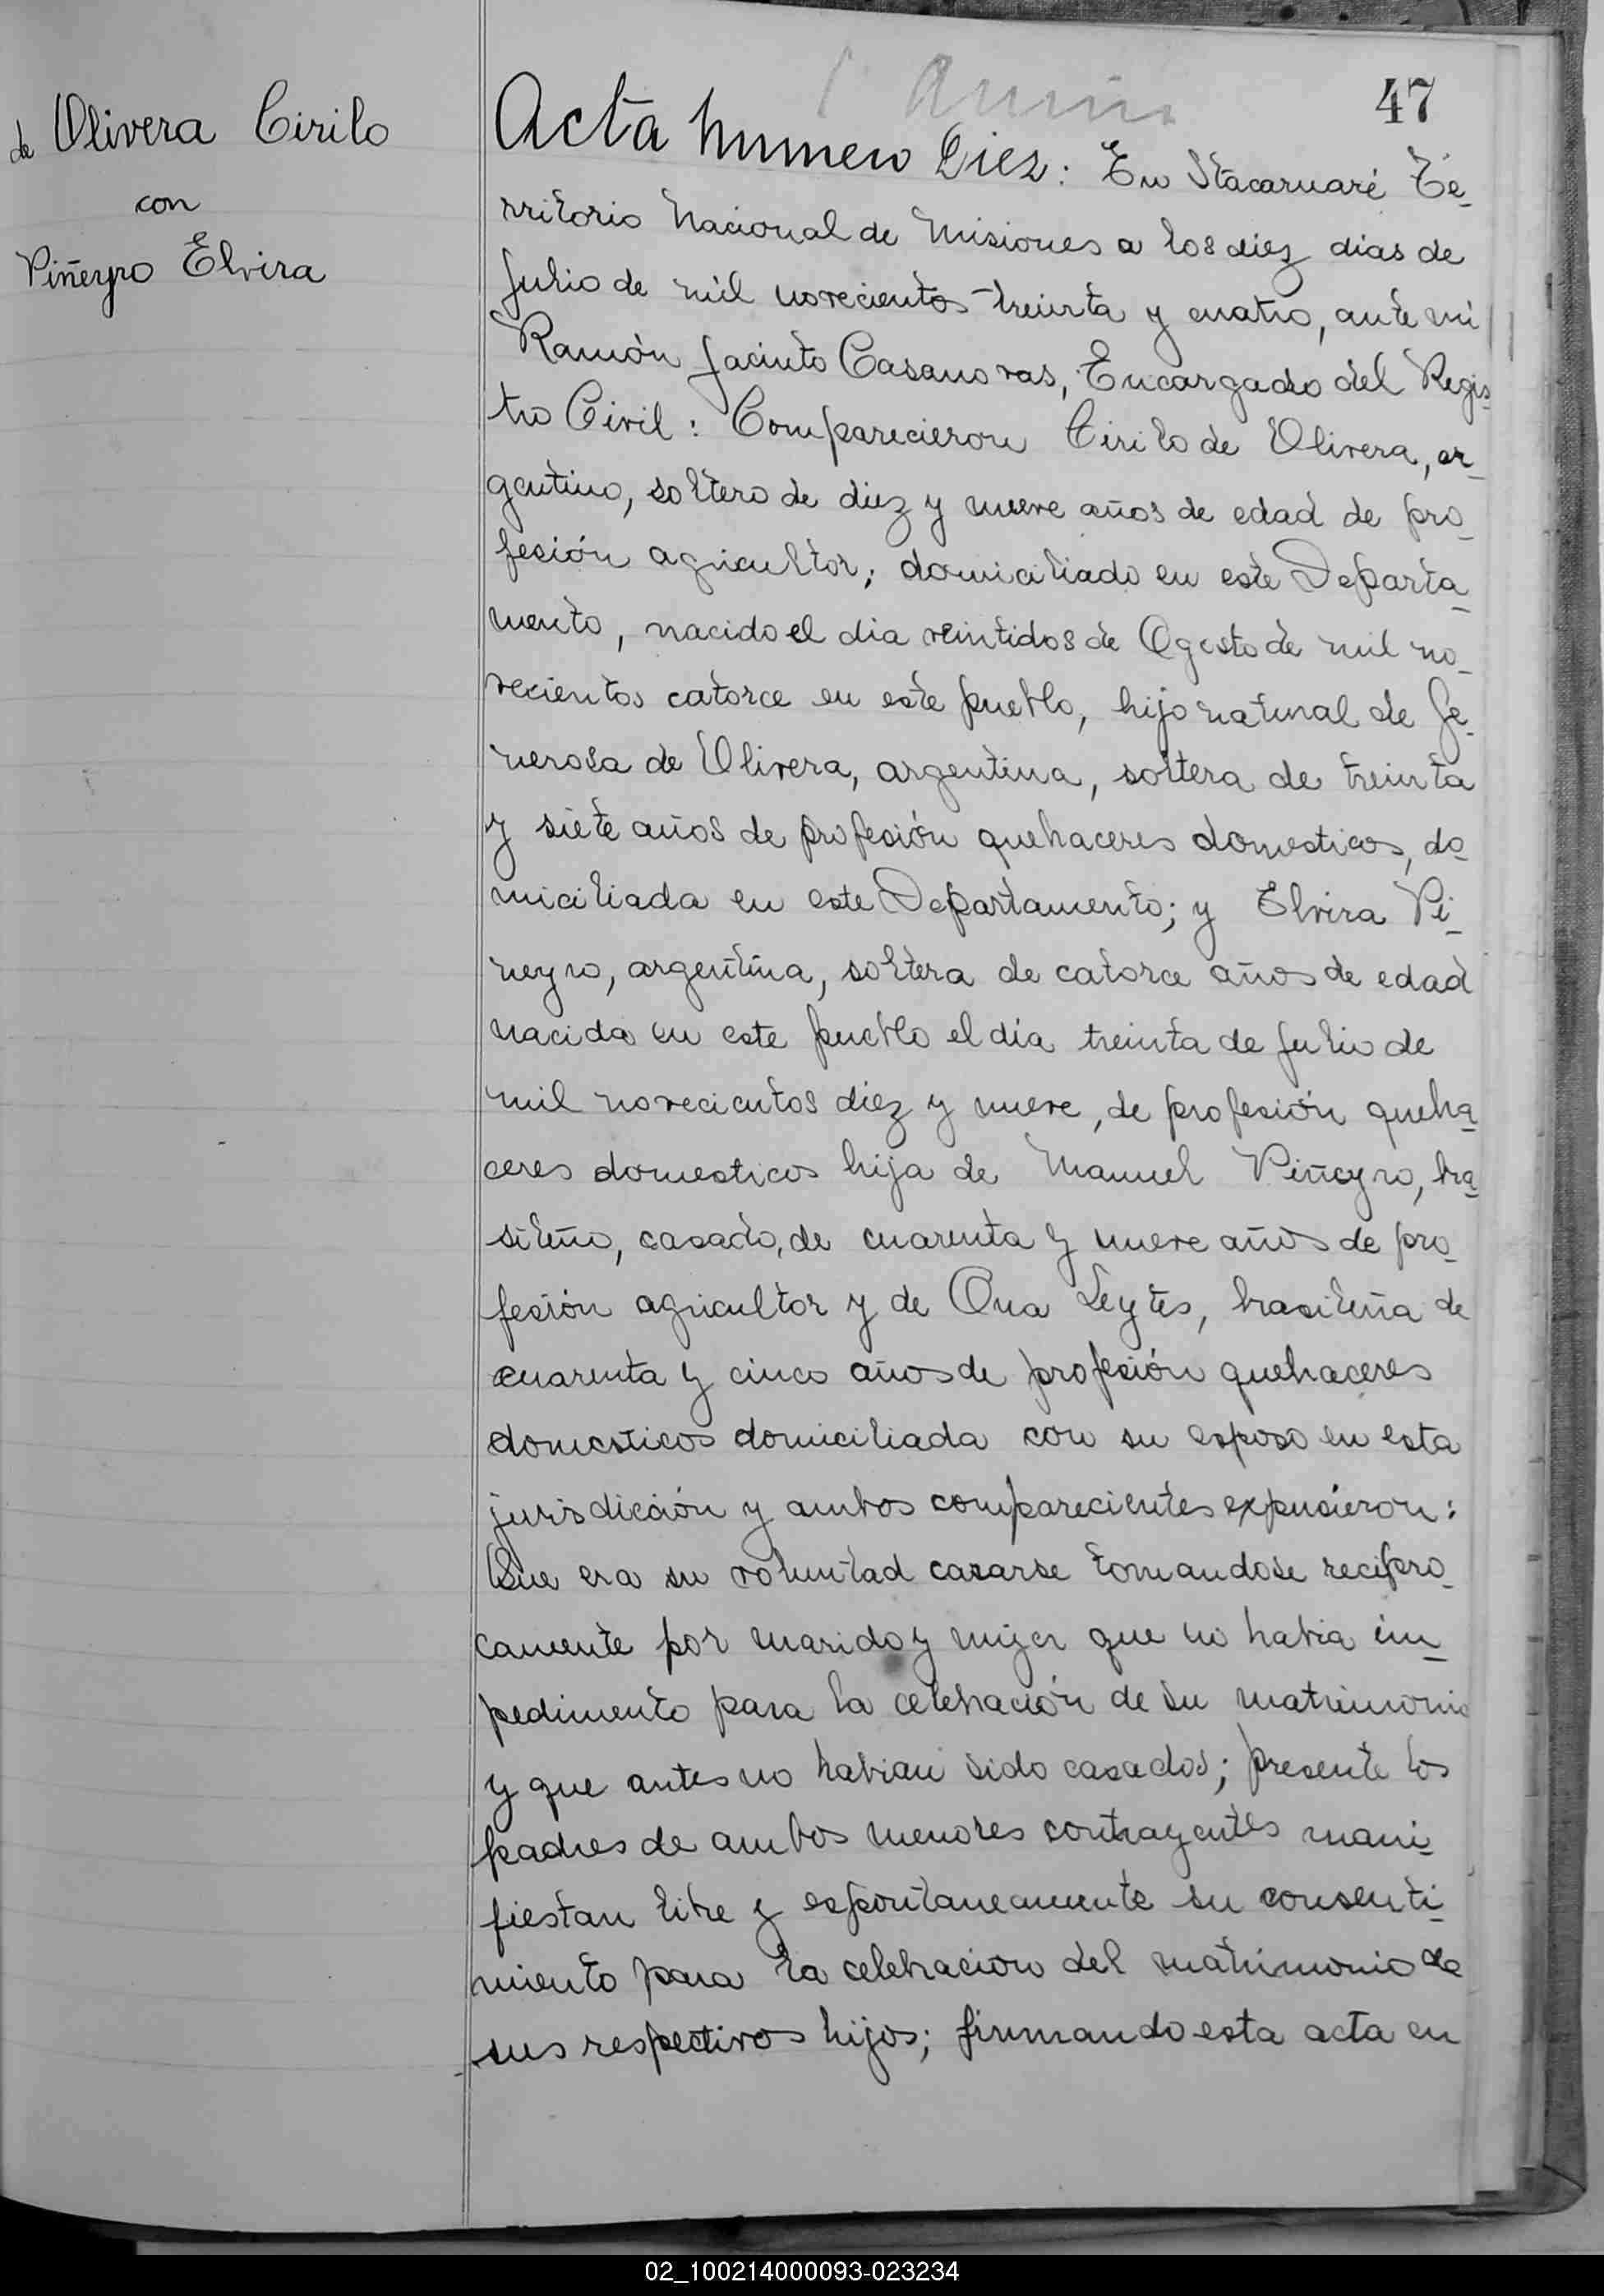 47
de Olivera Cirilo
con
Piñeyro Elvira
Acta numero Diez: En Itacaruaré Te-
rritorio Nacional de Misiones a los diez dias de
Julio de mil novecientos treinta y cuatro, ante mi
Ramón Jacinto Casanovas, Encargado del Regis-
tro Civil: Comparecieron Cirilo de Olivera, ar-
gentino, soltero de diez y nueve años de edad de pro-
fesión agricultor; domiciliado en este Departa-
mento, nacido el dia veintidos de Agosto de mil no-
vecientos catorce en este pueblo, hijo natural de Ge-
nerosa de Olivera, argentina, soltera de treinta
y siete años de profesión quehaceres domesticos, do-
miciliada en este Departamento; y Elvira Pi-
neyro, argentina, soltera de catorce años de edad
nacida en este pueblo el día treinta de Julio de
mil novecientos diez y nueve, de profesión queha-
ceres domesticos hija de Manuel Piñeyro, bra-
sileño, casado, de cuarenta y nueve años de pro-
fesión agricultor y de Ana Leytes, brasileña de
cuarenta y cinco años de profesión quehaceres
domesticos domiciliada con su esposo en esta
jurisdicción y ambos comparecientes expusieron:
Que era su voluntad casarse tomandose recipro-
camente por marido y mujer que no habia im-
pedimento para la celebración de su matrimonio
y que antes no habian sido casados; presente los
padres de ambos menores contrayentes mani-
fiestan libre y espontaneamente su consenti-
miento para la celebracion del matrimonio de
sus respectivos hijos; firmando esta acta en
02_100214000093-023234